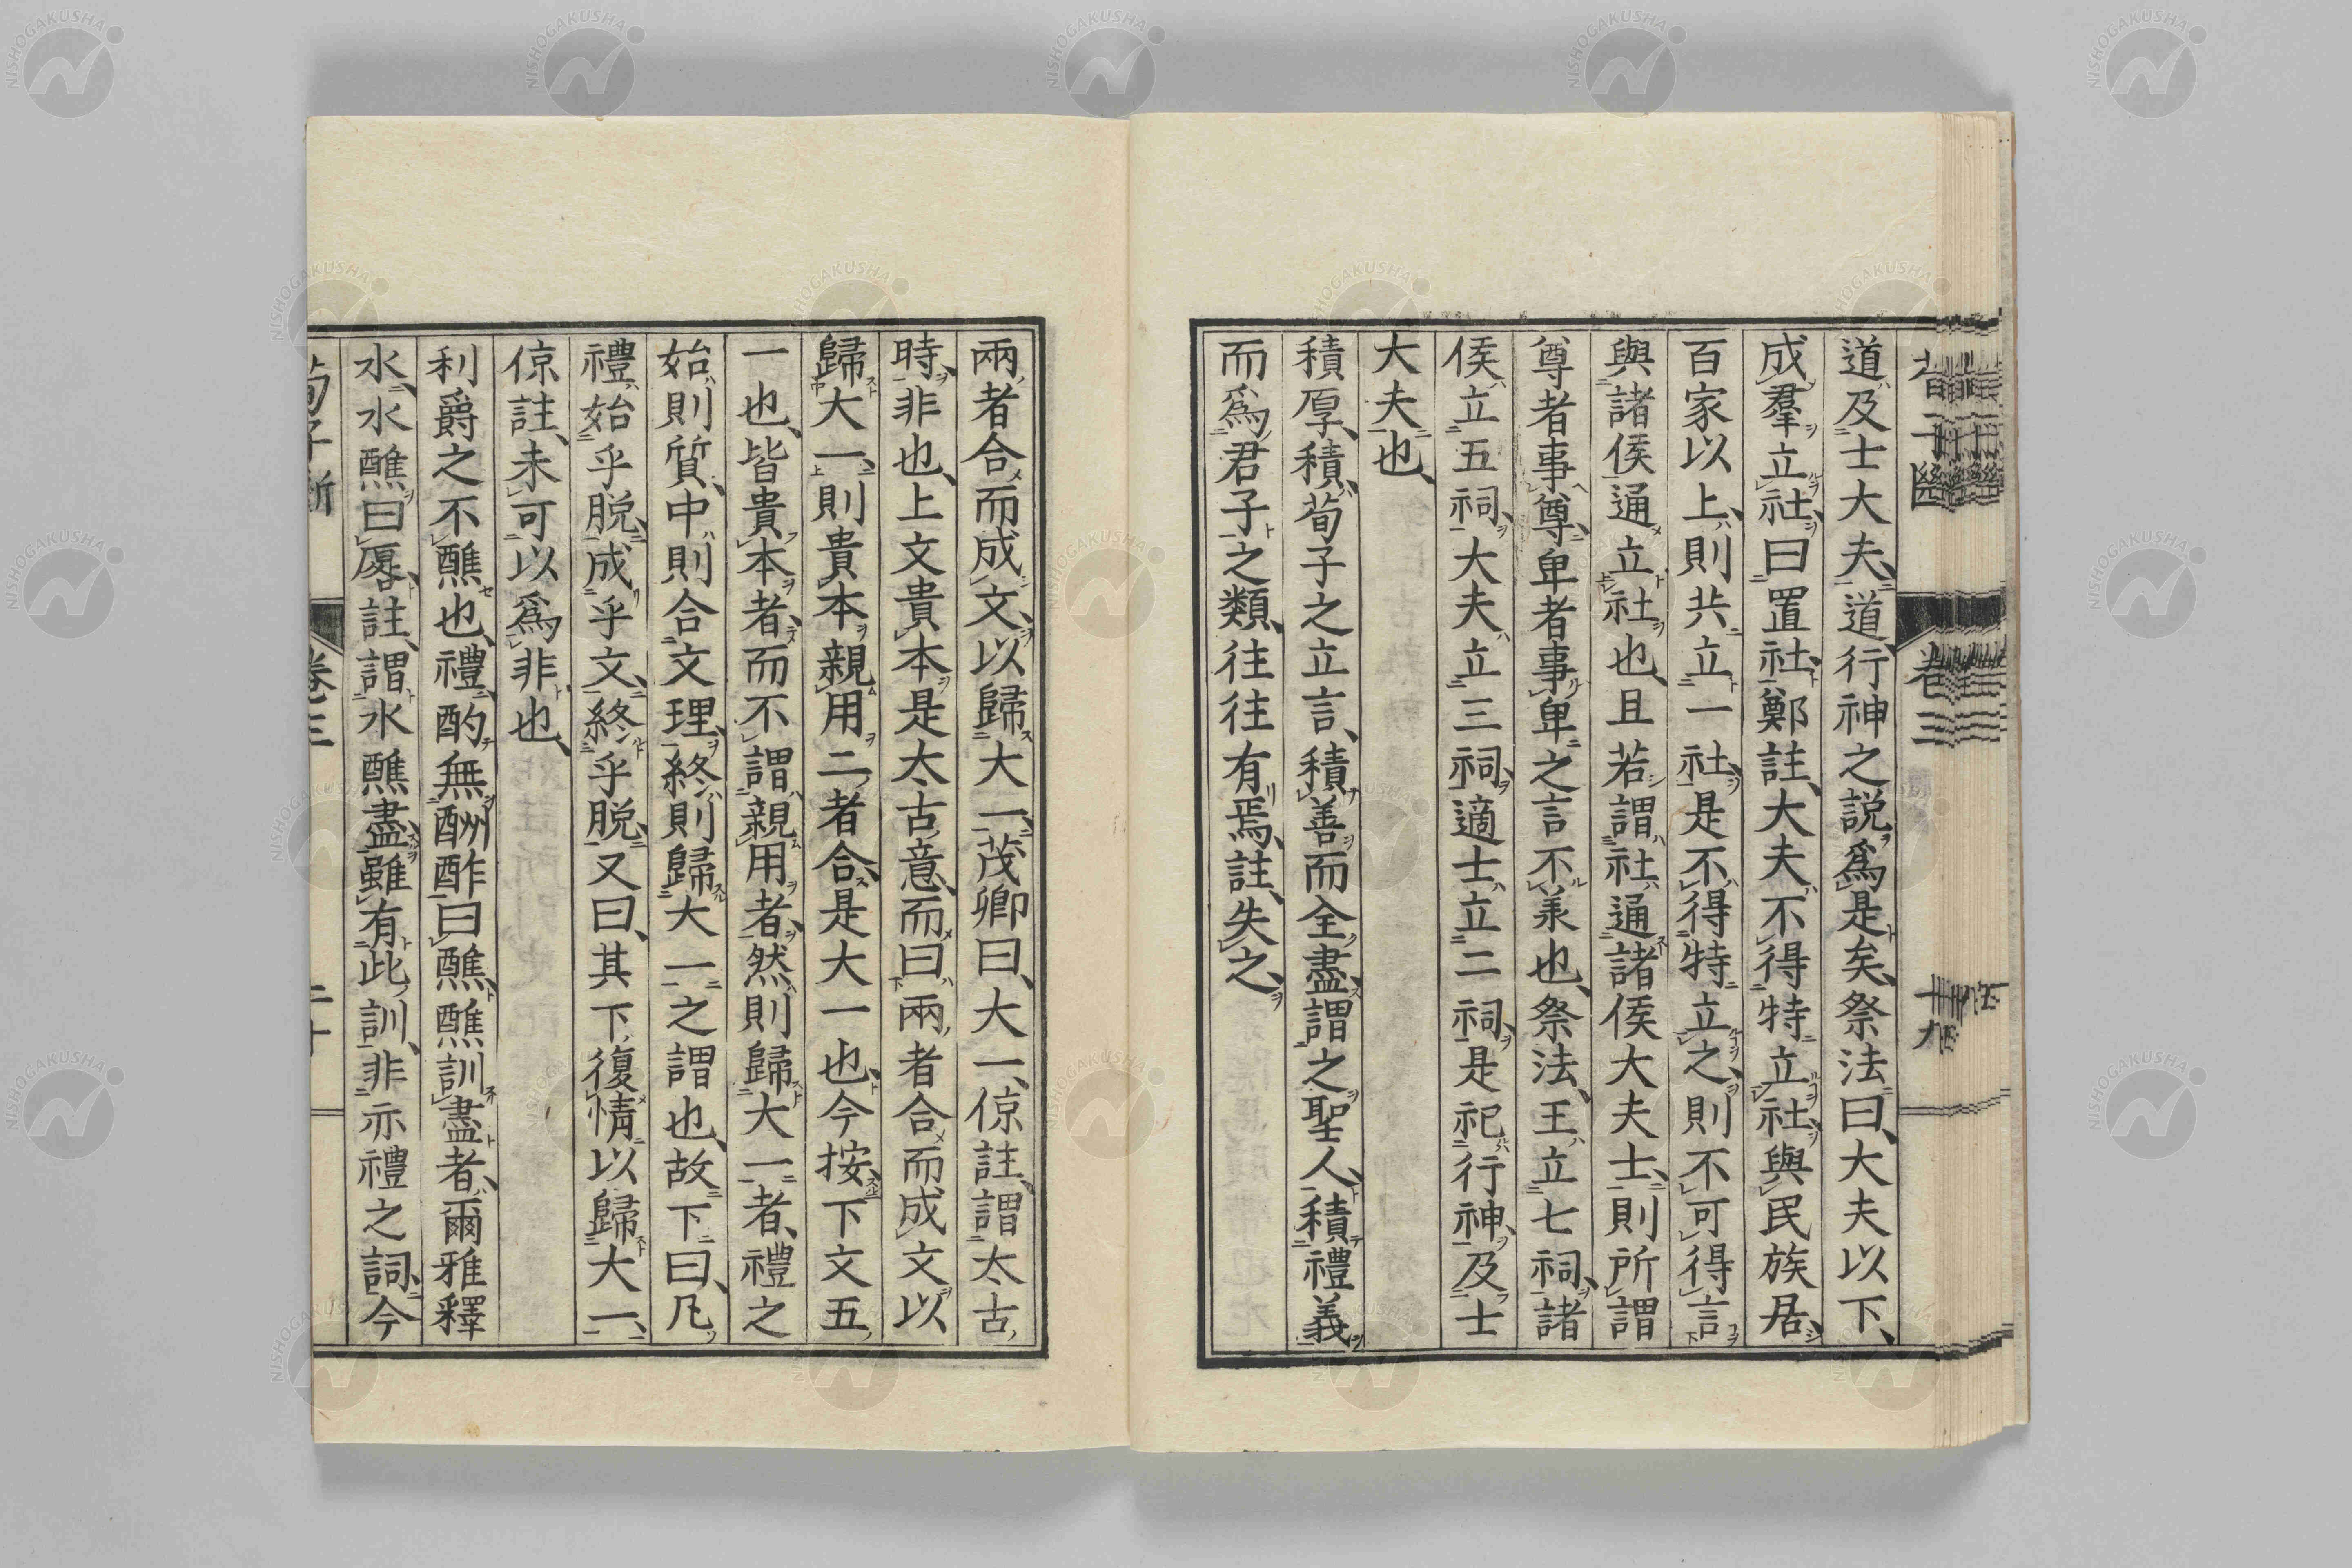 道及士大夫道行神之説爲是矣祭法曰大夫以下
成羣立社曰置社鄭註大夫不得特立社與民族居
百家以上則共立一社是不得特立之則不可得言
與諸侯通立社也且若謂社通諸侯大夫士則所謂
尊者事尊卑者事卑之言不羕也祭法王立七祠諸
侯立五祠大夫立三祠適士立二祠是祀行神及士
大夫也
積厚積荀子之立言積善而全盡謂之聖人積禮義
而爲君子之類往往有焉註失之
兩者合而成文以歸大一茂卿曰大一倞註謂太古
時非也上文貴本是太古意而曰兩者合而成文以
歸大一則貴本親用二者合是大一也今按下文五
一也皆貴本者而不謂親用者然則歸大一者禮之
始則質中則合文理終則歸大一之謂也故下曰凡
禮始乎脱成乎文終乎脱又曰其下復情以歸大一
倞註未可以爲非也
利爵之不醮也禮酌無酬酢曰醮醮訓盡者爾雅釋
水水醮曰厬註謂水醮盡雖有此訓非亦禮之詞今
卷三
NISHOGAKUSHA